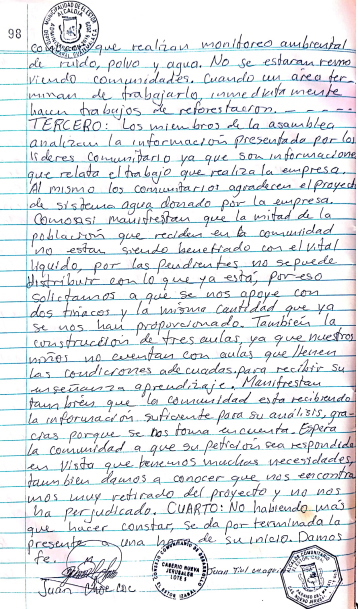 98
que realizan monitoreo ambiental
de ruido, polvo y agua. No se estaran remo
viendo comunidades. Cuando un área ter
minan de trabajarlo, inmediatamente
hacen trabajos de reforestacion. - - - - -
TERCERO: Los miembros de la asamblea
analizan la información presentada por los
lideres comunitario ya que son informacione
que relata el trabajo que realiza la empresa.
Al mismo los comunitarios agradecen el proyect
de sistema agua donado por la empresa.
Comoasi manifiestan que la mitad de la
población que reciden en la comunidad
no estan siendo benefiado con el vital
liquido, por las pendientes no se puede
distribuir con lo que ya está, por eso
solicitamos a que se nos apoye con
dos tinacos y la misma cantidad que ya
se nos han proporcionado. También la
construcción de tres aulas, ya que nuestros
niños no cuentan con aulas que llenen
las condiciones adecuadas para recibir su
enseñanza aprendizaje. Manifiestan
también que la comunidad esta recibiendo
la información suficiente para su análisis, gra-
cias porque se nos toma encuenta. Espera
la comunidad a que su petición sea respondida
en vista que tenemos muchas necesidades,
tambien damos a conocer que nos encontra
mos muy retirado del proyecto y no nos
ha perjudicado. CUARTO: No habiendo más
que hacer constar, se da por terminada la
presente a una hora de su inicio. Damos
fe.
CASERIO NUEVA
JERUSALEN
LOTE 8
Juan Tiul
Juan COC